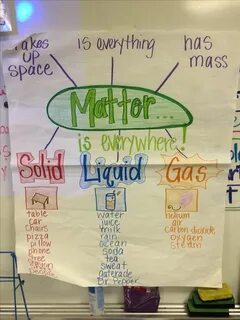 takes up space
is everything
has mass
Matter...
is everywhere!
Solid
table
car
chairs
pizza
pillow
phone
tree
people
Liquid
water
juice
milk
rain
ocean
soda
tea
sweat
Gatorade
Dr. Pepper
Gas
helium
air
carbon dioxide
oxygen
steam